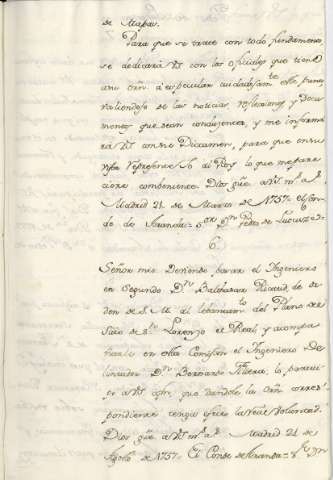 de Mapas.
Para que se trate con todo fundamento
se dedicará VS con los oficiales que tiene
a su orn a especular cuidadosamte este punto
valiendose de las noticias, reflexiones y docu
mentos que sean conducentes, y me informa
rá VS con su Dictamen, para que en su
vista represente Yo al Rey lo que me pare
ciere combeniente Dios gūe a VS ms as
Madrid 21 de Marzo de 1757 el Con
de de Aranda = Sor Dn Pedro de Lucuze =
6
Señor mio Deviendo pasar el Ingeniero
en Segundo Dn Balthasar Ricaud, de or
den de S.M. al lebantamto del Plano de
Sitio de Sn Lorenzo el Real, y acompa
ñarle en esta Comision el Ingeniero De
lineador Dn Bernardo Fillera, lo partici
po a VS afin, que dandole la orn corres
pondiente tenga efecto la Real voluntad.
Dios gūe a VS ms as Madrid 21 de
de 1757. El Conde de Aranda = Sor Dn